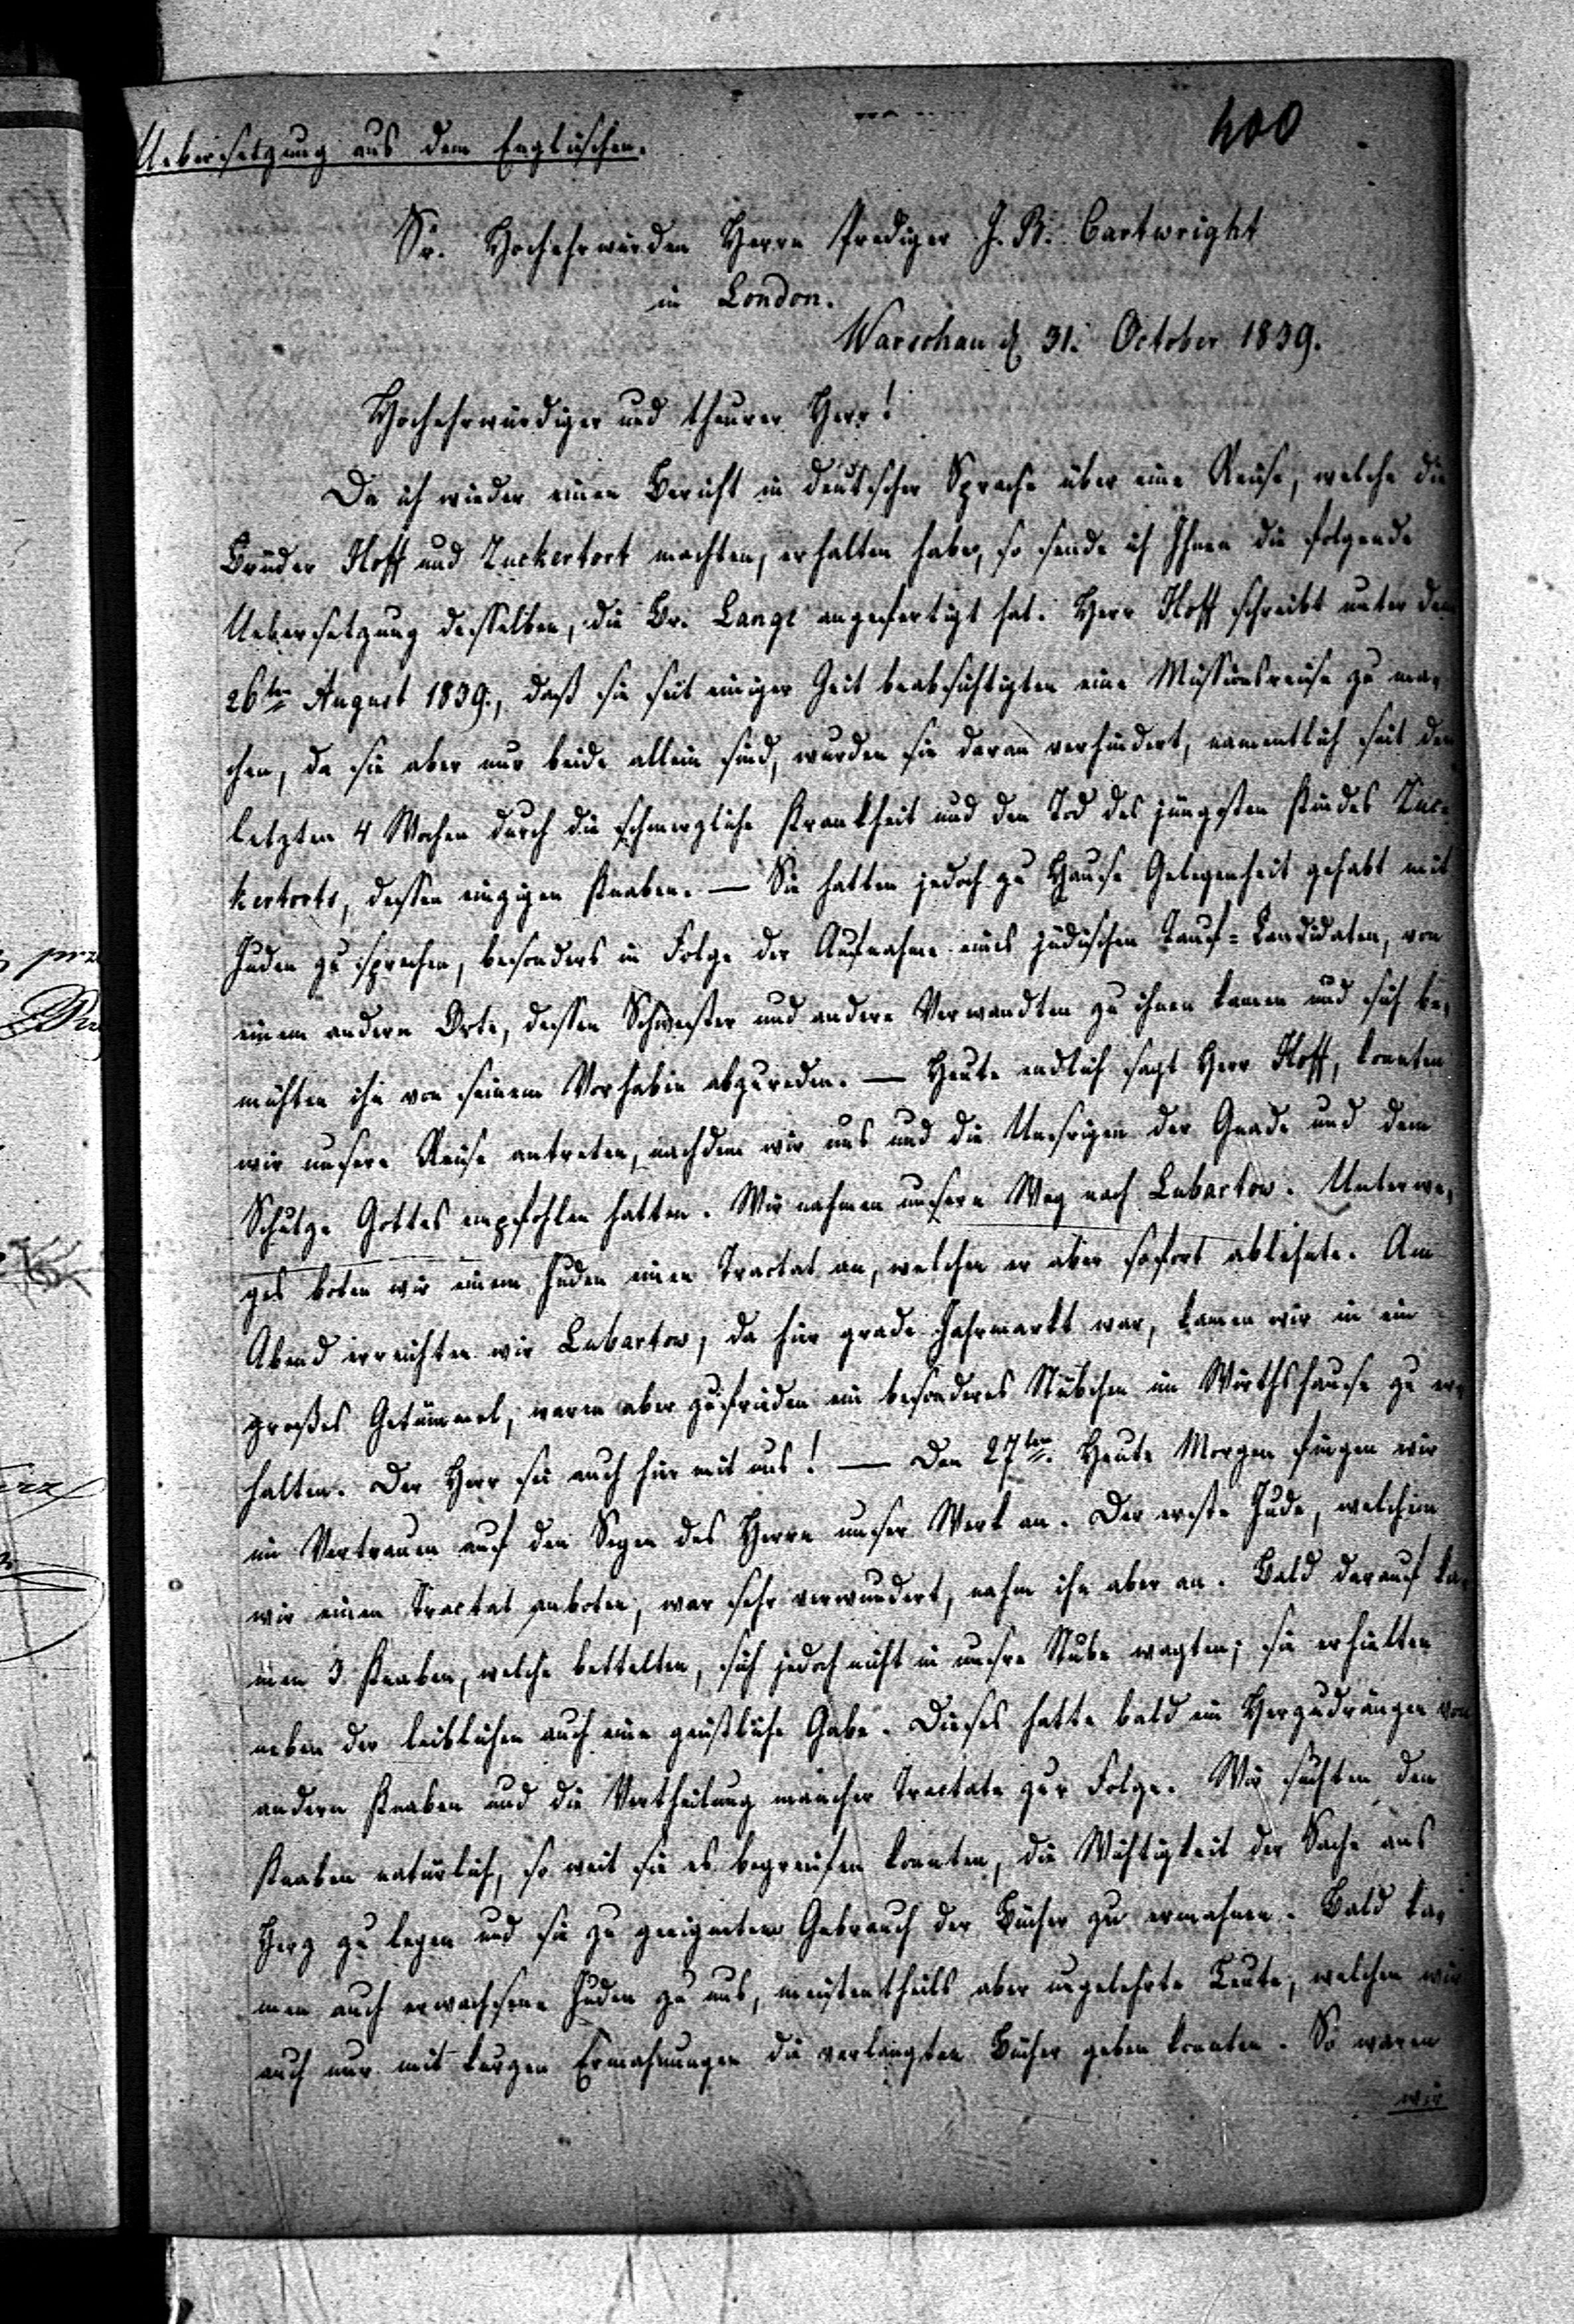 400
Uebersetzung aus dem Englischen.
Sr. Hochehrwürden Herrn Prediger J. B. Cartwright
in London.
Warschau d 31. October 1839.
Hochehrwürdiger und theurer Herr!
Da ich wieder einen Bericht in deutscher Sprache über eine Reise, welche die
Brüder Hoff und Zuckertort machten, erhalten habe, so sende ich Ihnen die folgende
Uebersetzung desselben, die Br. Lange angefertigt hat. Herr Hoff schreibt unter dem
26ten August 1839., daß sie seit einiger Zeit beabsichtigten eine Missionsreise zu ma-
chen, da sie aber nur beide allein sind, wurden sie daran verhindert, namentlich seit den
letzten 4 Wochen durch die schmerzliche Krankheit und den Tod des jüngsten Kindes Zuc-
kertorts, dessen einzigen Knaben. — Sie hatten jedoch zu Hause Gelegenheit gehabt mit
Juden zu sprechen, besonders in Folge der Aufnahme eines jüdischen Tauf-Candidaten, von
einem andern Orte, dessen Schwester und andere Verwandten zu ihnen kamen und sich be-
mühten ihn von seinem Vorhaben abzureden. — Heute endlich sagt Herr Hoff, konnten
wir unsere Reise antreten, nachdem wir uns und die Unsrigen der Gnade und dem
Schutze Gottes empfohlen hatten. Wir nahmen unsern Weg nach Lubartow. Unterwe-
ges boten wir einem Juden einen Tractat an, welchen er aber sofort ablehnte. Am
Abend erreichten wir Lubartow, da hier grade Jahrmarkt war, kamen wir in ein
großes Getümmel, waren aber zufrieden ein besonderes Stübchen im Wirthshause zu er-
halten. Der Herr sei auch hier mit uns! — Den 27ten. Heute Morgen fingen wir
im Vertrauen auf den Segen des Herrn unser Werk an. Der erste Jude, welchem
wir einen Tractat anboten, war sehr verwundert, nahm ihn aber an. Bald darauf ka-
men 3 Knaben, welche bettelten, sich jedoch nicht in unsre Stube wagten; sie erhielten
neben der leiblichen auch eine geistliche Gabe. Dieses hatte bald ein Herzudrängen von
andern Knaben und die Vertheilung mancher Tractate zur Folge. Wir suchten den
Knaben natürlich, so weit sie es begreifen konnten, die Wichtigkeit der Sache ans
Herz zu legen und sie zu geeignetem Gebrauch der Bücher zu ermahnen. Bald ka-
men auch erwachsene Juden zu uns, meistentheils aber ungelehrte Leute, welchen wir
auch nur mit kurzen Ermahnungen die verlangten Bücher geben konnten. So waren
wir